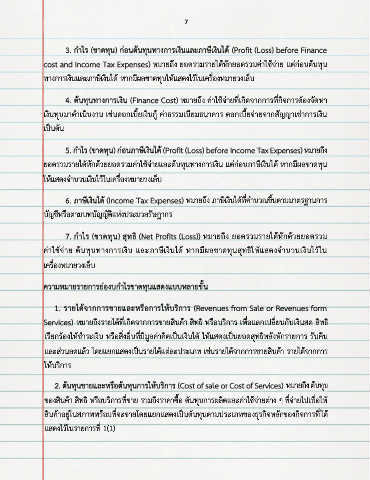 7
3. กำไร (ขาดทุน) ก่อนต้นทุนทางการเงินและภาษีเงินได้ (Profit (Loss) before Finance
cost and Income Tax Expenses) หมายถึง ยอดรวมรายได้หักยอดรวมค่าใช้จ่าย แต่ก่อนต้นทุน
ทางการเงินและภาษีเงินได้ หากมีผลขาดทุนให้แสดงไว้ในเครื่องหมายวงเล็บ
4. ต้นทุนทางการเงิน (Finance Cost) หมายถึง ค่าใช้จ่ายที่เกิดจากการที่กิจการต้องจัดหา
เงินทุนมาดำเนินงาน เช่นดอกเบี้ยเงินกู้ ค่าธรรมเนียมธนาคาร ดอกเบี้ยจ่ายจากสัญญาเช่าการเงิน
เป็นต้น
5. กำไร (ขาดทุน) ก่อนภาษีเงินได้ (Profit (Loss) before Income Tax Expenses) หมายถึง
ยอดรวมรายได้หักด้วยยอดรวมค่าใช้จ่ายและต้นทุนทางการเงิน แต่ก่อนภาษีเงินได้ หากมีผลขาดทุน
ให้แสดงจำนวนเงินไว้ในเครื่องหมายวงเล็บ
6. ภาษีเงินได้ (Income Tax Expenses) หมายถึง ภาษีเงินได้ที่คำนวณขึ้นตามมาตรฐานการ
บัญชีหรือตามบทบัญญัติแห่งประมวลรัษฎากร
7. กำไร (ขาดทุน) สุทธิ (Net Profits (Loss)) หมายถึง ยอดรวมรายได้หักด้วยยอดรวม
ค่าใช้จ่าย ต้นทุนทางการเงิน และภาษีเงินได้ หากมีผลขาดทุนสุทธิให้แสดงจำนวนเงินไว้ใน
เครื่องหมายวงเล็บ
ความหมายรายการย่องบกำไรขาดทุนแสดงแบบหลายขั้น
1. รายได้จากการขายและหรือการให้บริการ (Revenues from Sale or Revenues form
Services) หมายถึงรายได้ที่เกิดจากการขายสินค้า สิทธิ หรือบริการ เพื่อแลกเปลี่ยนกับเงินสด สิทธิ
เรียกร้องให้ชำระเงิน หรือสิ่งอื่นที่มีมูลค่าคิดเป็นเงินได้ ให้แสดงเป็นยอดสุทธิหลังหักรายการ รับคืน
และส่วนลดแล้ว โดยแยกแสดงเป็นรายได้แต่ละประเภท เช่นรายได้จากการขายสินค้า รายได้จากการ
ให้บริการ
2. ต้นทุนขายและหรือต้นทุนการให้บริการ (Cost of sale or Cost of Services) หมายถึง ต้นทุน
ของสินค้า สิทธิ หรือบริการที่ขาย รวมถึงราคาซื้อ ต้นทุนการผลิตและค่าใช้จ่ายต่าง ๆ ที่จ่ายไปเพื่อให้
สินค้าอยู่ในสภาพพร้อมที่จะขายโดยแยกแสดงเป็นต้นทุนตามประเภทของธุรกิจหลักของกิจการที่ได้
แสดงไว้ในรายการที่ 1(1)